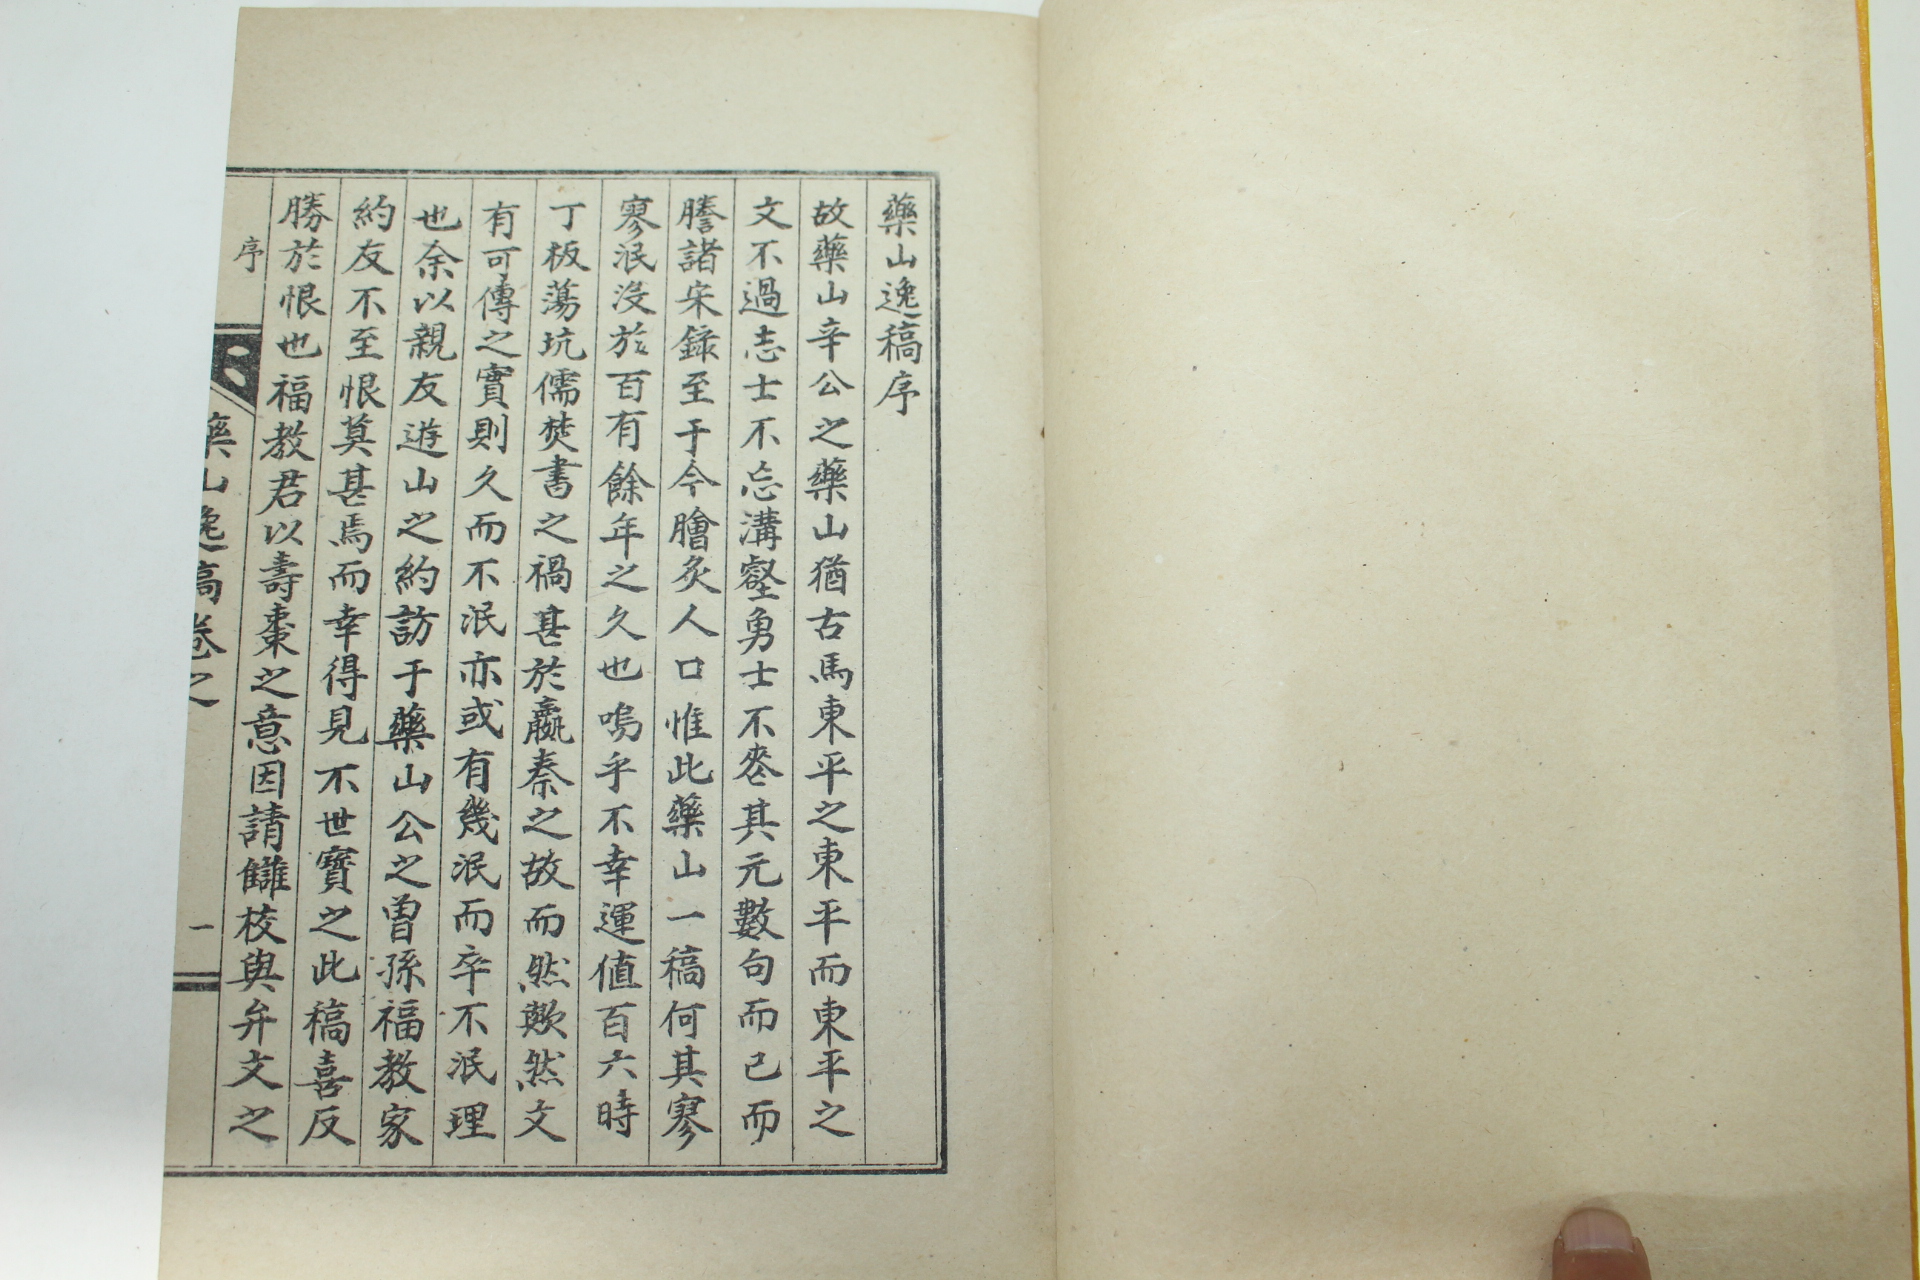 藥山逸稿序
故藥山辛公之藥山猶古馬東平之東平而東平之
文不過志士不忘溝壑勇士不忘其元數句而已而
謄諸宋錄至于今膾炙人口惟此藥山一稿何其寥
寥泯沒於百有餘年之久也嗚乎不幸運値百六時
丁板蕩坑儒焚書之禍甚於嬴秦之故而然歟然文
有可傳之實則久而不泯亦或有幾泯而卒不泯理
也余以親友遊山之約訪于藥山公之曾孫福教家
約友不至恨莫甚焉而幸得見不世寶之此稿喜反
勝於恨也福教君以壽棗之意因請讎校與弁文之
序
藥山逸稿卷之
一